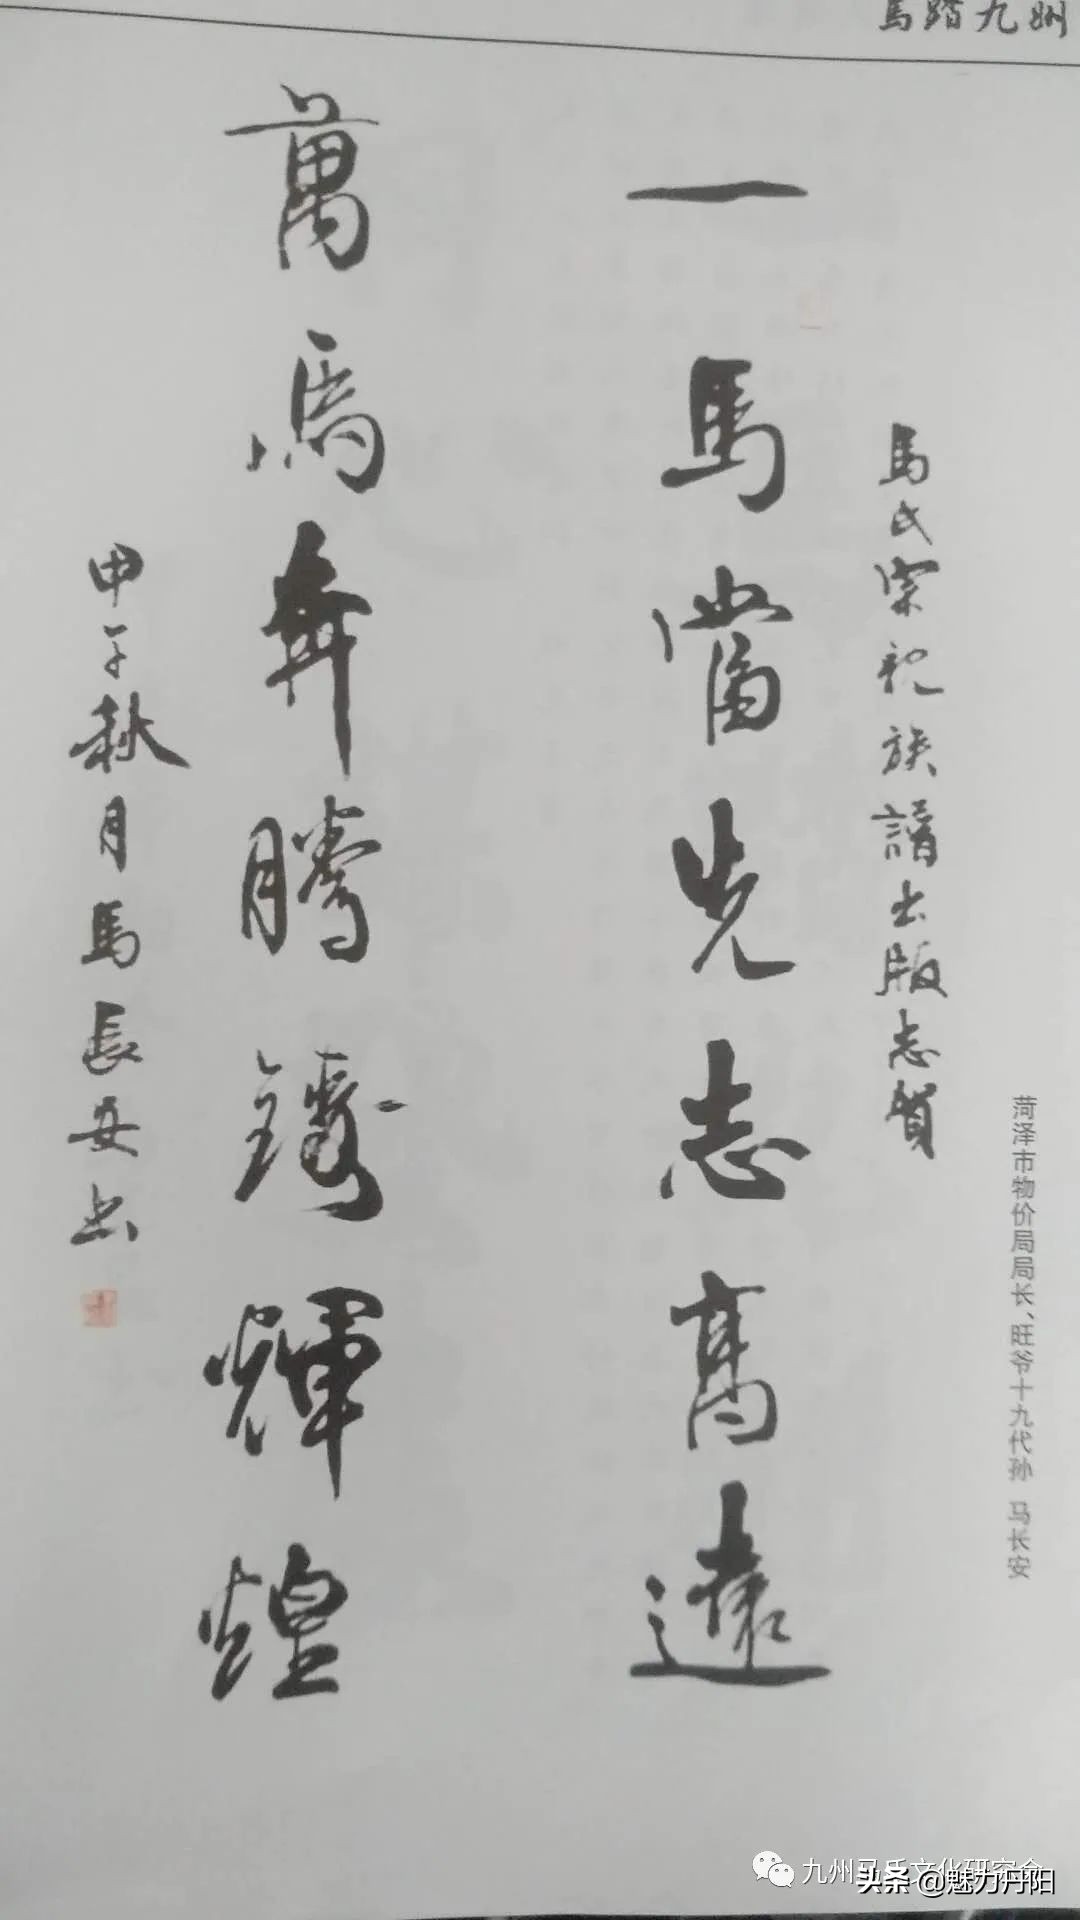 馬踏九州
菏泽市物价局局长、旺爷十九代孙 马长安
馬氏宗親族譜出版志賀
一馬當先志高遠
萬馬奔騰鑄輝煌
甲午秋月馬長安书
九州马氏文化研究会
头条 @魅力丹阳